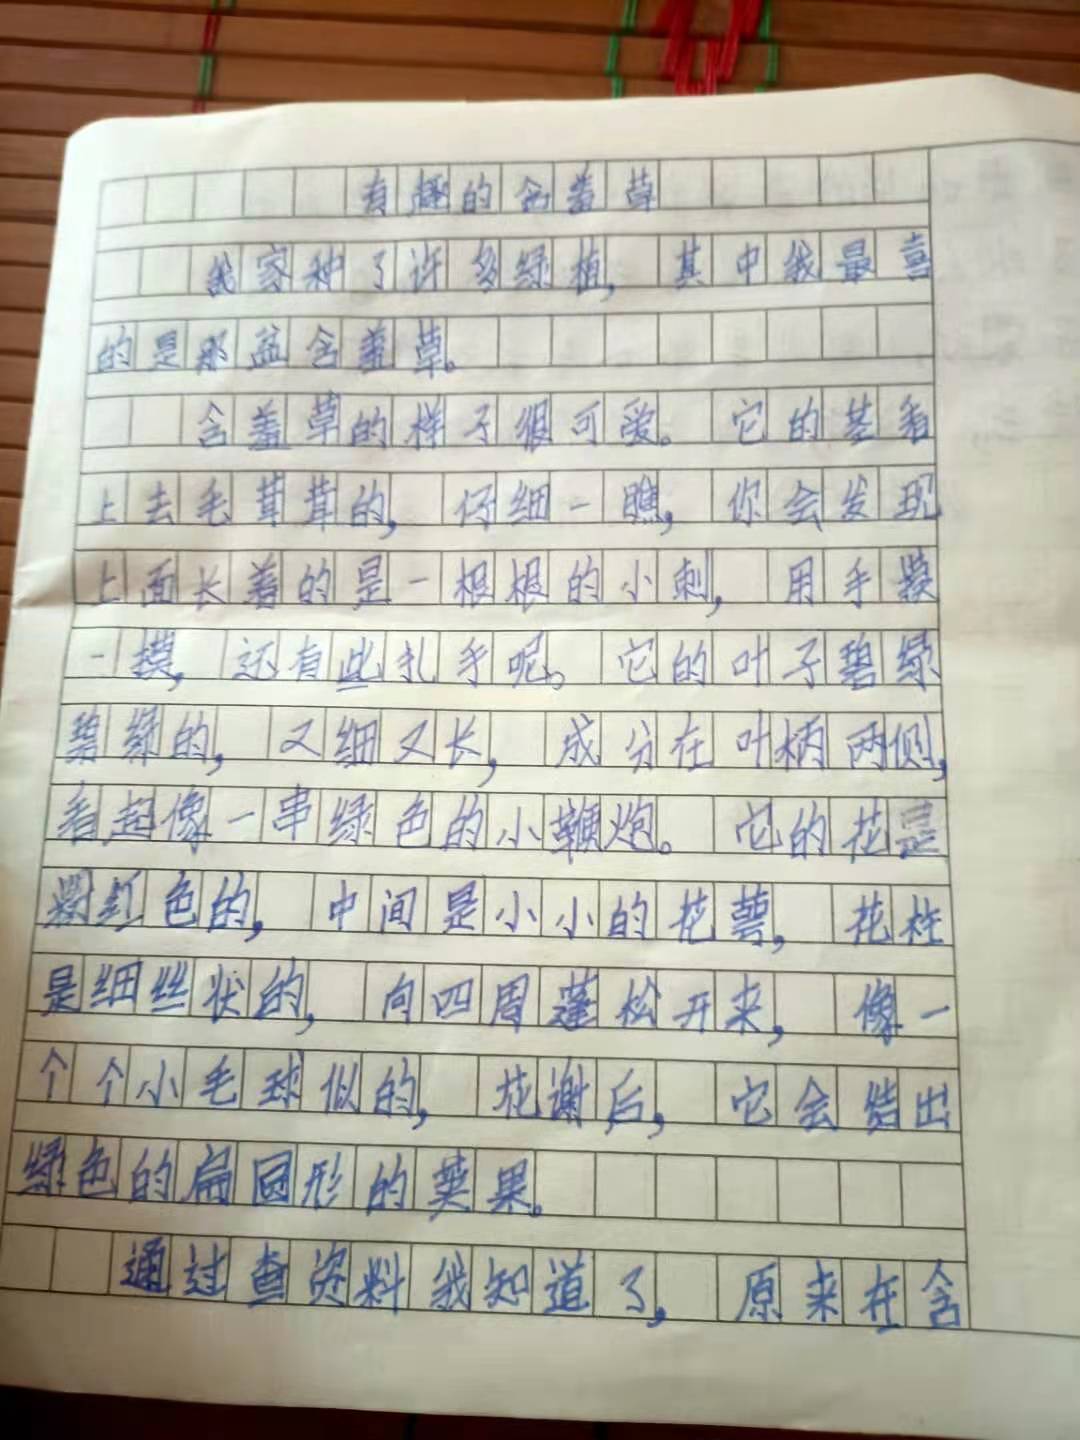 有趣的含羞草
我家种了许多绿植，其中我最喜
的是那盆含羞草。
含羞草的样子很可爱。它的茎看
上去毛茸茸的，仔细一瞧，你会发现
上面长着的是一根根的小刺，用手摸
一摸，还有些扎手呢。它的叶子碧绿
碧绿的，又细又长，成分在叶柄两侧，
看起像一串绿色的小鞭炮。它的花是
粉红色的，中间是小小的花萼，花柱
是细丝状的，向四周蓬松开来，像一
个个小毛球似的，花谢后，它会结出
绿色的扁圆形的荚果。
通过查资料我知道了，原来在含